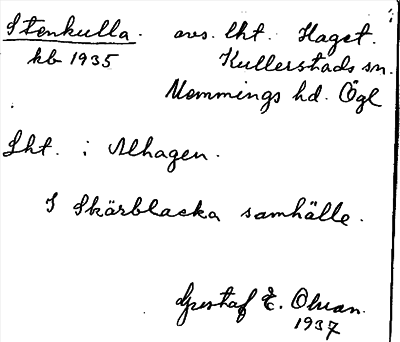 Stenkulla. avs. lht. Haget.
kb 1935 Kullerstads sn.
Memmings hd. Ögl
Lht. i Alhagen.
I Skärblacka samhälle.
Gustaf E.
1937